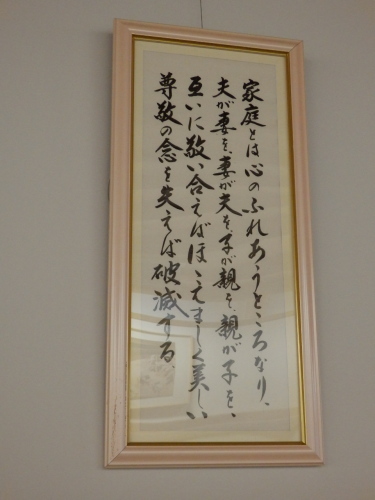 家庭とは心のふれあうところなり、
夫が妻を、妻が夫を、子が親を、親が子を、
互いに敬い合えばほゝえましく美しい
尊敬の念を失えば破滅する。